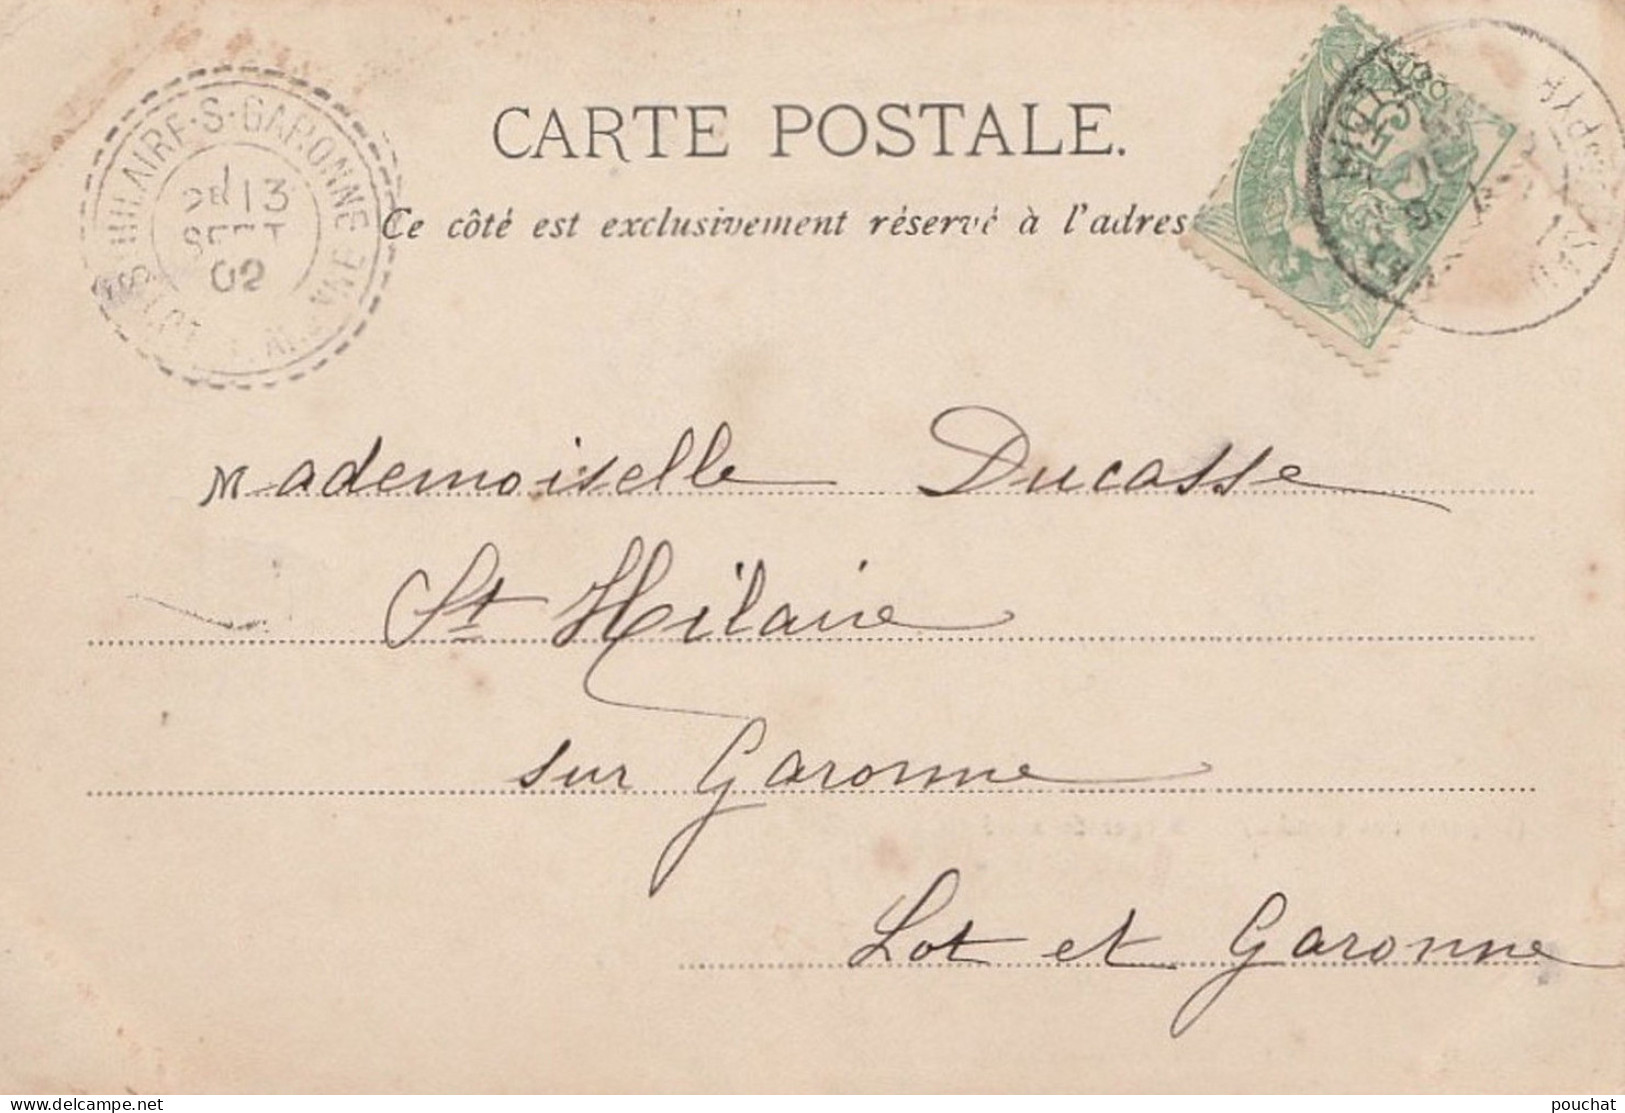 CARTE POSTALE.
Ce côté est exclusivement réservé à l'adres
HILAIRE-S-GARONNE
13
SEPT
02
Mademoiselle Ducasse
St Hilaire
sur Garonne
Lot et Garonne
www.delcampe.net
pouchat